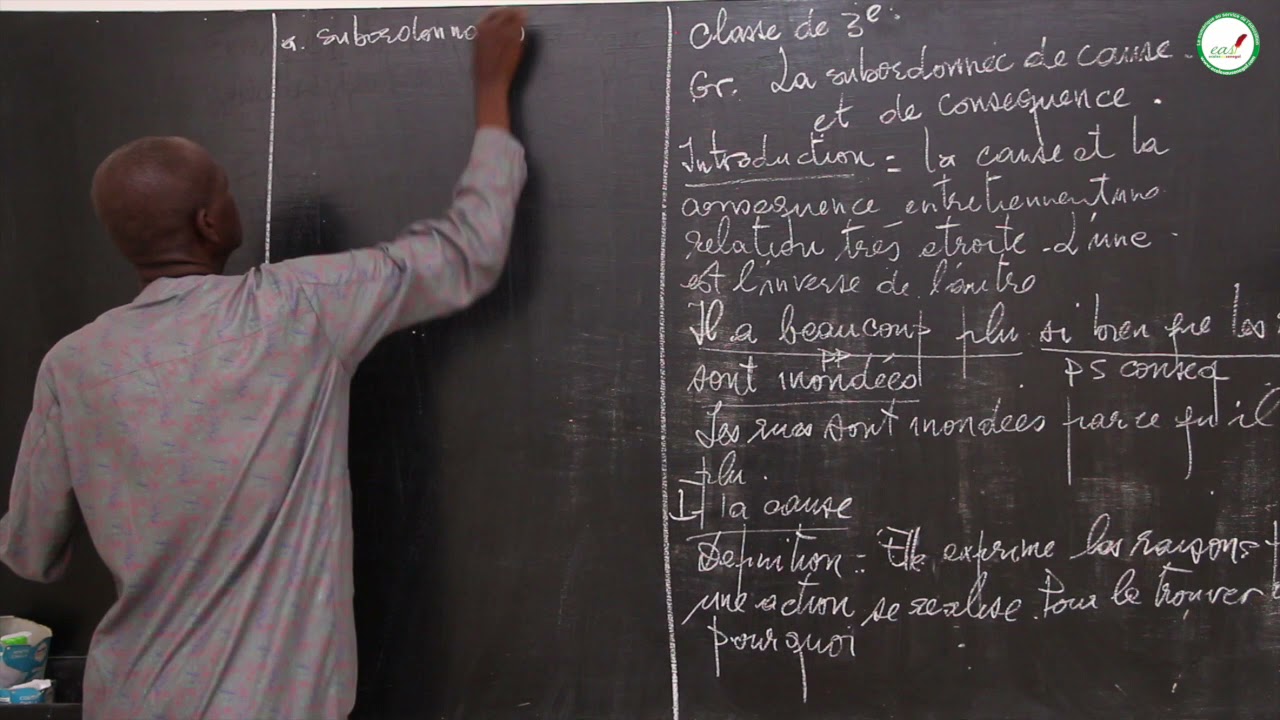 a. Subordonno
Classe de 3e.
Gr. La subordonnée de cause
et de consequence.
Introduction = la cause et la
consequence entretiennent une
relation très etroite. L'une
est l'inverse de l'autre
Il a beaucoup plu si bien que les
sont inondées
PP
PS conseq
Les rues sont inondées parce qu'il
plu.
I- la cause
Definition = Elle exprime les raisons
une action se realise. Pour le trouver
pourquoi
eas